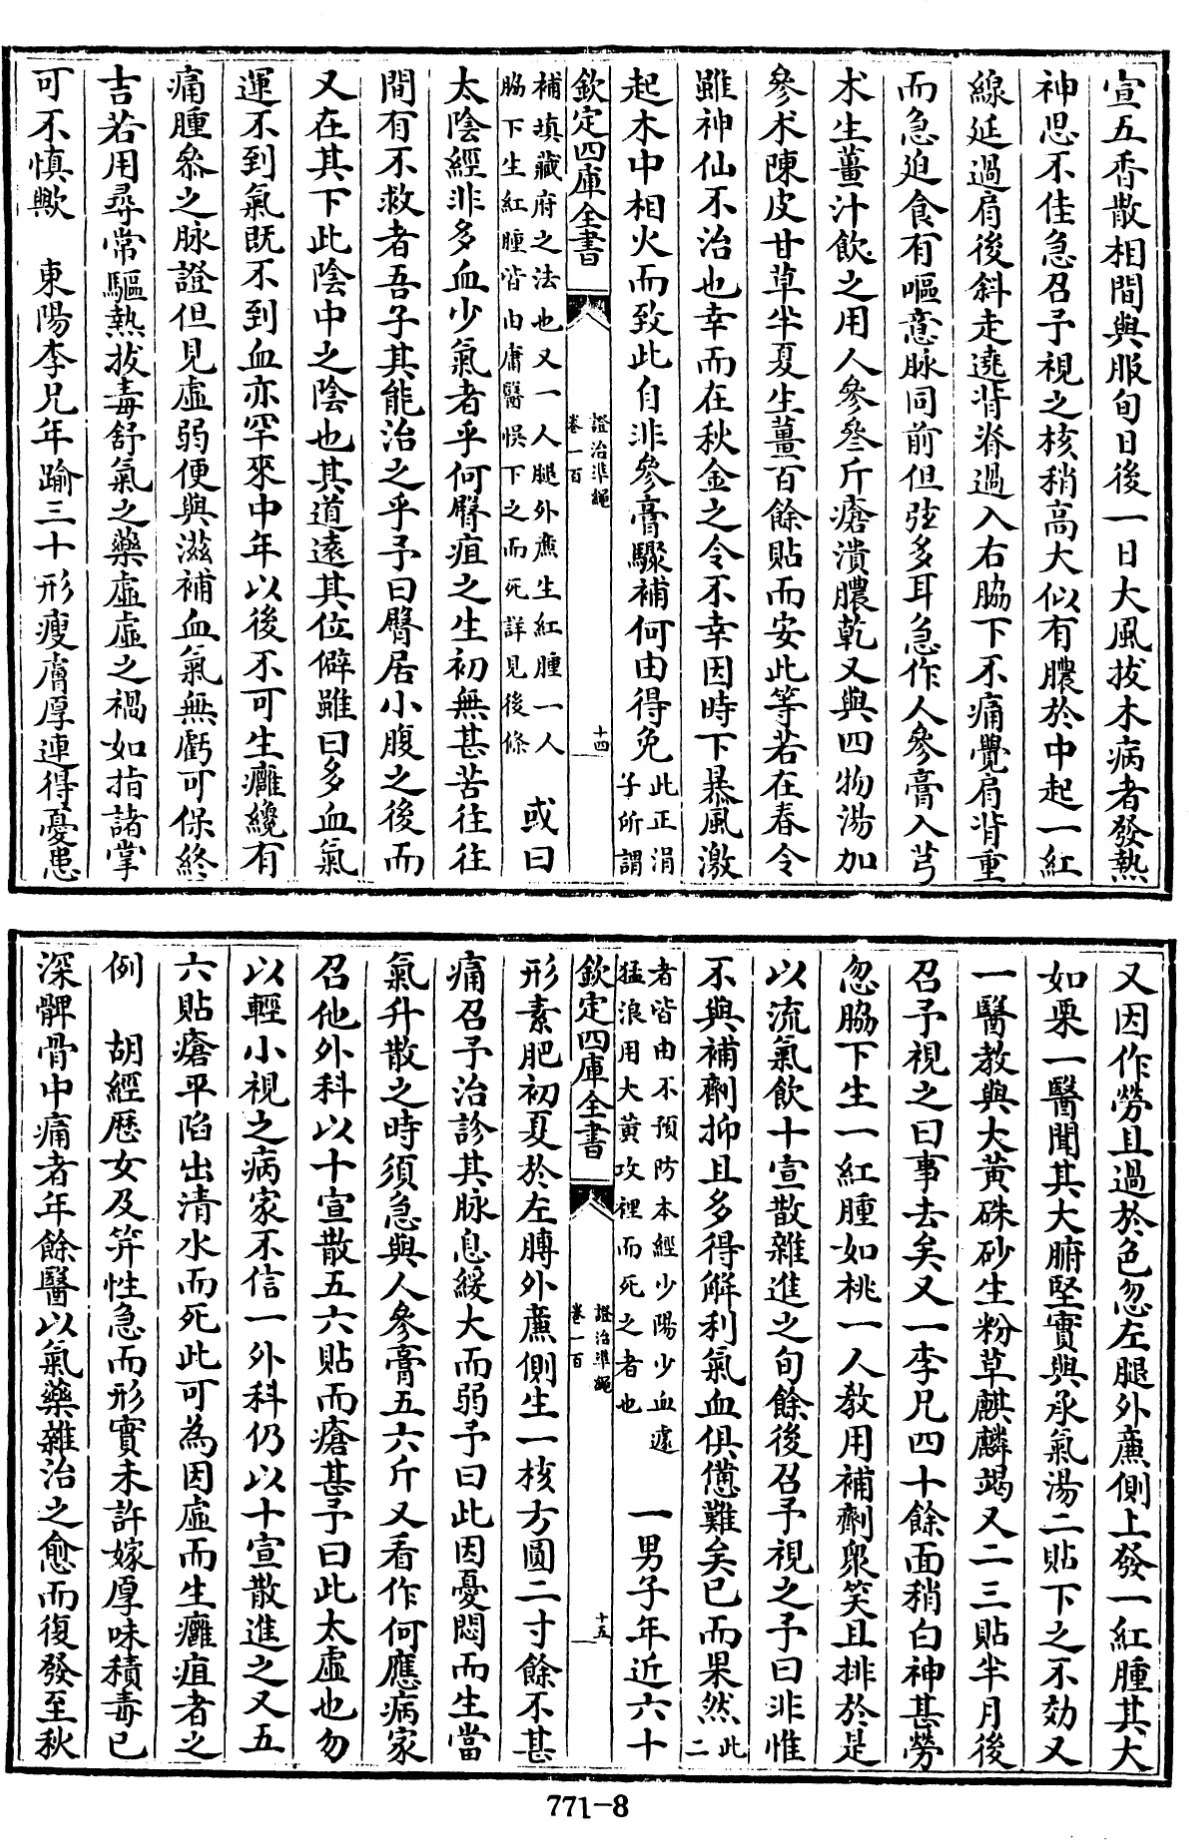 宣五香散相間與服旬日後一日大風拔木病者發熱
神思不佳急召予視之核稍高大似有膿於中起一紅
線延過肩後斜走遶背脊過入右脇下不痛覺肩背重
而急迫食有嘔意脉同前但弦多耳急作人參膏入芎
术生薑汁飲之用人參叁斤瘡潰膿乾又與四物湯加
參术陳皮甘草半夏生薑百餘貼而安此等若在春令
雖神仙不治也幸而在秋金之令不幸因時下暴風激
起木中相火而致此自非參膏驟補何由得免此正涓
子所謂
欽定四庫全書
證治準繩
卷一百
十四
補填藏府之法也又一人腿外亷生紅腫一人
脇下生紅腫皆由庸醫悞下之而死詳見後條
或曰
太陰經非多血少氣者乎何臀疽之生初無甚苦往往
間有不救者吾子其能治之乎予曰臀居小腹之後而
又在其下此陰中之陰也其道遠其位僻雖曰多血氣
運不到氣既不到血亦罕來中年以後不可生癰纔有
痛腫叅之脉證但見虛弱便與滋補血氣無虧可保終
吉若用尋常驅熱拔毒舒氣之藥虛虛之禍如指諸掌
可不慎歟 東陽李兄年踰三十形瘦膚厚連得憂患
又因作勞且過於色忽左腿外亷側上發一紅腫其大
如栗一醫聞其大腑堅實與承氣湯二貼下之不効又
一醫教與大黄硃砂生粉草麒麟竭又二三貼半月後
召予視之曰事去矣又一李兄四十餘面稍白神甚勞
忽脇下生一紅腫如桃一人教用補劑衆笑且排於是
以流氣飲十宣散雜進之旬餘後召予視之予曰非惟
不與補劑抑且多得解利氣血俱憊難矣已而果然此
二
者皆由不預防本經少陽少血遽
猛浪用大黄攻裡而死之者也
一男子年近六十
欽定四庫全書
證治準繩
卷一百
十五
形素肥初夏於左膊外亷側生一核方圓二寸餘不甚
痛召予治診其脉息緩大而弱予曰此因憂悶而生當
氣升散之時須急與人參膏五六斤又看作何應病家
召他外科以十宣散五六貼而瘡甚予曰此太虛也勿
以輕小視之病家不信一外科仍以十宣散進之又五
六貼瘡平陷出清水而死此可為因虛而生癰疽者之
例 胡經歷女及笄性急而形實未許嫁厚味積毒已
深髀骨中痛者年餘醫以氣藥雜治之愈而復發至秋
771-8